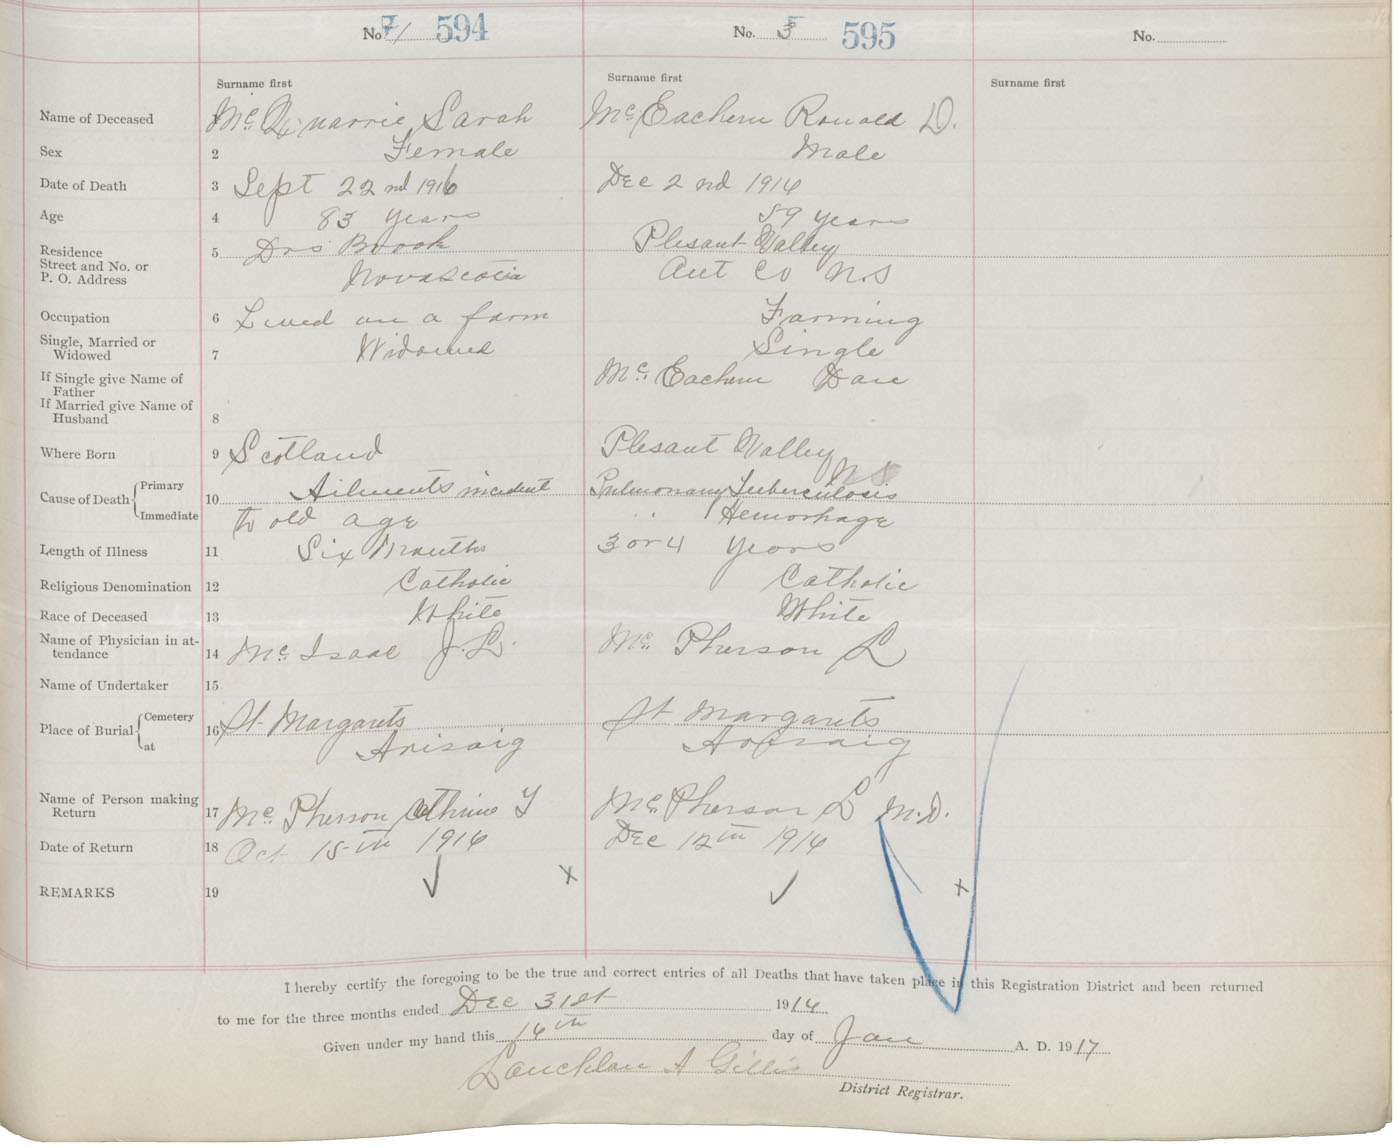 No. 7/ 594 No. 3 595 No.
Surname first Surname first Surname first
Name of Deceased McQuarrie Sarah McEachern Ronald D.
Sex 2 Female Male
Date of Death 3 Sept 22nd 1916 Dec 2nd 1916
Age 4 83 years 59 years
Residence Street and No. or P. O. Address 5 Drs Brook Plesant Valley
Novascotia Ant Co N.S
Occupation 6 Lived on a farm Farming
Single, Married or Widowed 7 Widowed Single
If Single give Name of Father McEachern Dan
If Married give Name of Husband 8
Where Born 9 Scotland Plesant Valley N S
Cause of Death Primary 10 Ailments incident Pulmonary Tuberculosis
Immediate to old age " Hemorhage
Length of Illness 11 Six Months 3 or 4 years
Religious Denomination 12 Catholic Catholic
Race of Deceased 13 White White
Name of Physician in attendance 14 McIsaac J. L. McPherson L
Name of Undertaker 15
Place of Burial Cemetery 16 St Margarets St Margarets
at Arisaig Arisaig
Name of Person making Return 17 McPherson Cathrine Y McPherson L M.D.
Date of Return 18 Oct 15th 1916 Dec 12th 1916
REMARKS 19 ✓ x ✓ x
I hereby certify the foregoing to be the true and correct entries of all Deaths that have taken place in this Registration District and been returned
to me for the three months ended Dec 31st 1916
Given under my hand this 16th day of Jan A. D. 1917
Lauchlan A Gillis
District Registrar.